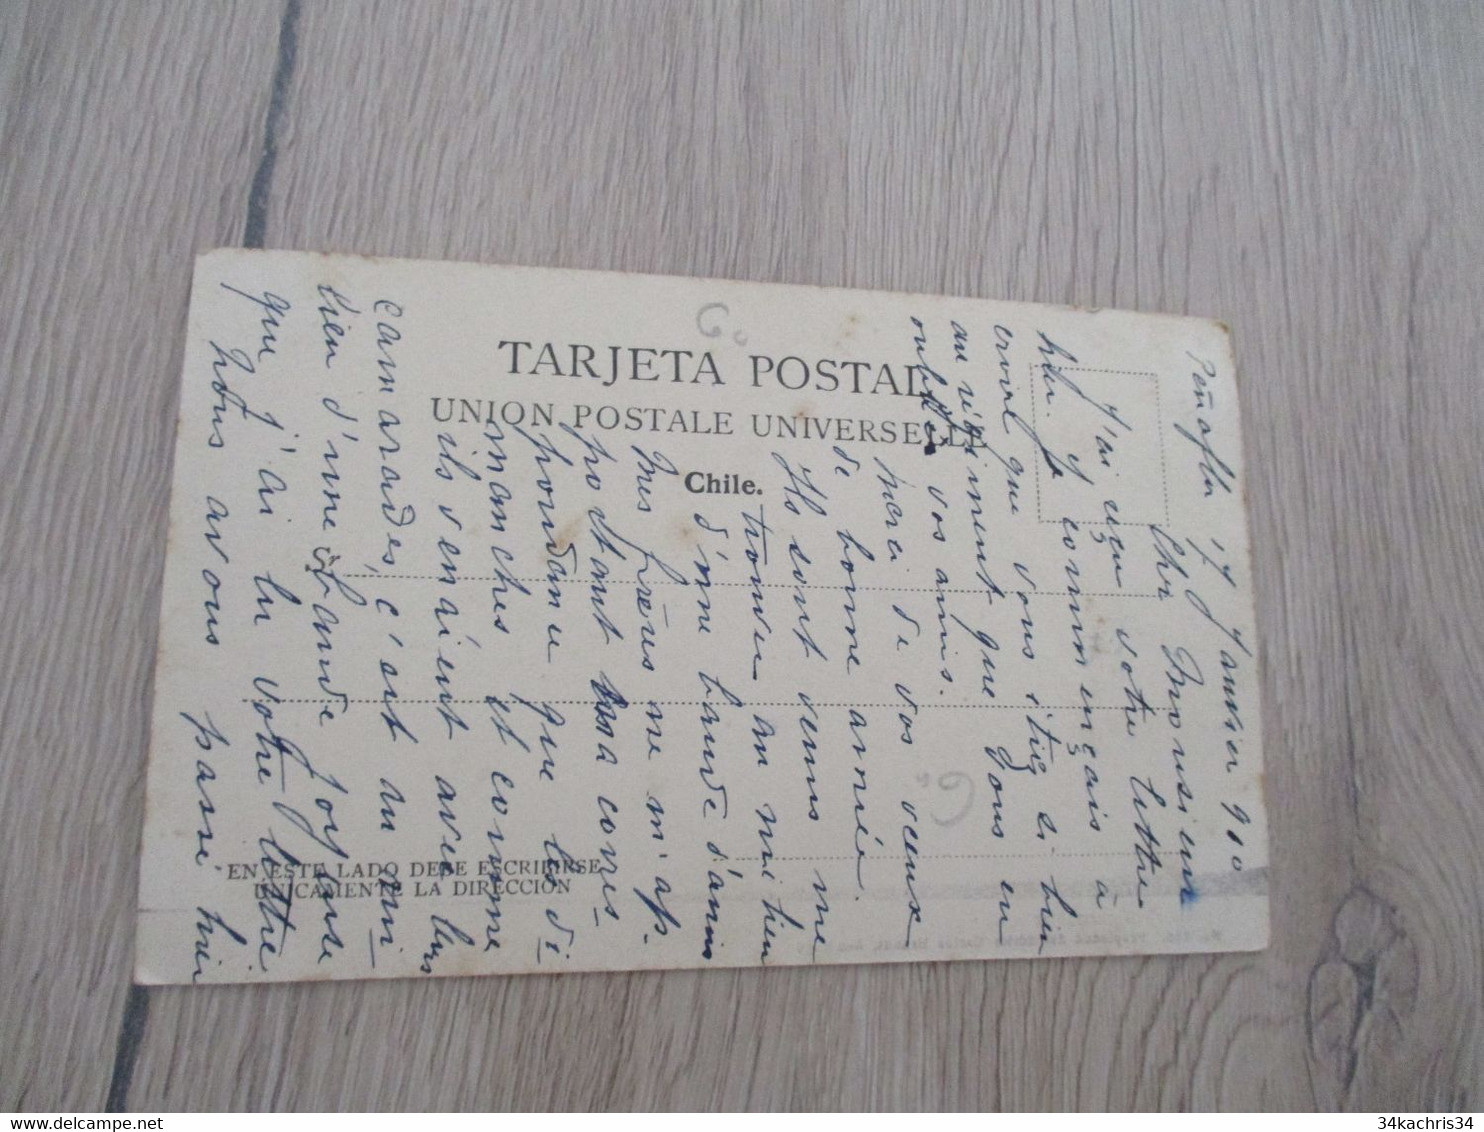 TARJETA POSTAL
UNION POSTALE UNIVERSELLE
Chile.
EN ESTE LADO DEBE ESCRIBIRSE
UNICAMENTE LA DIRECCIÓN
Peñaflor 17 Janvier 910
Cher Monsieur
J'ai reçu votre lettre
hier. Je commençais à
croire que vous étiez si bien
au régiment que vous en
oubliez vos amis.
Merci de vos vœux
de bonne année.
Ils sont venus me
trouver au milieu
d'une bande d'amis
Mes frères ne m'ap-
portant la corres-
pondance que les di-
manches et comme
ils venaient avec leurs
camarades, c'est au mi-
lieu d'une bande joyeuse
que j'ai lu votre lettre.
Nous avons passé hier
60
60
34kachris34